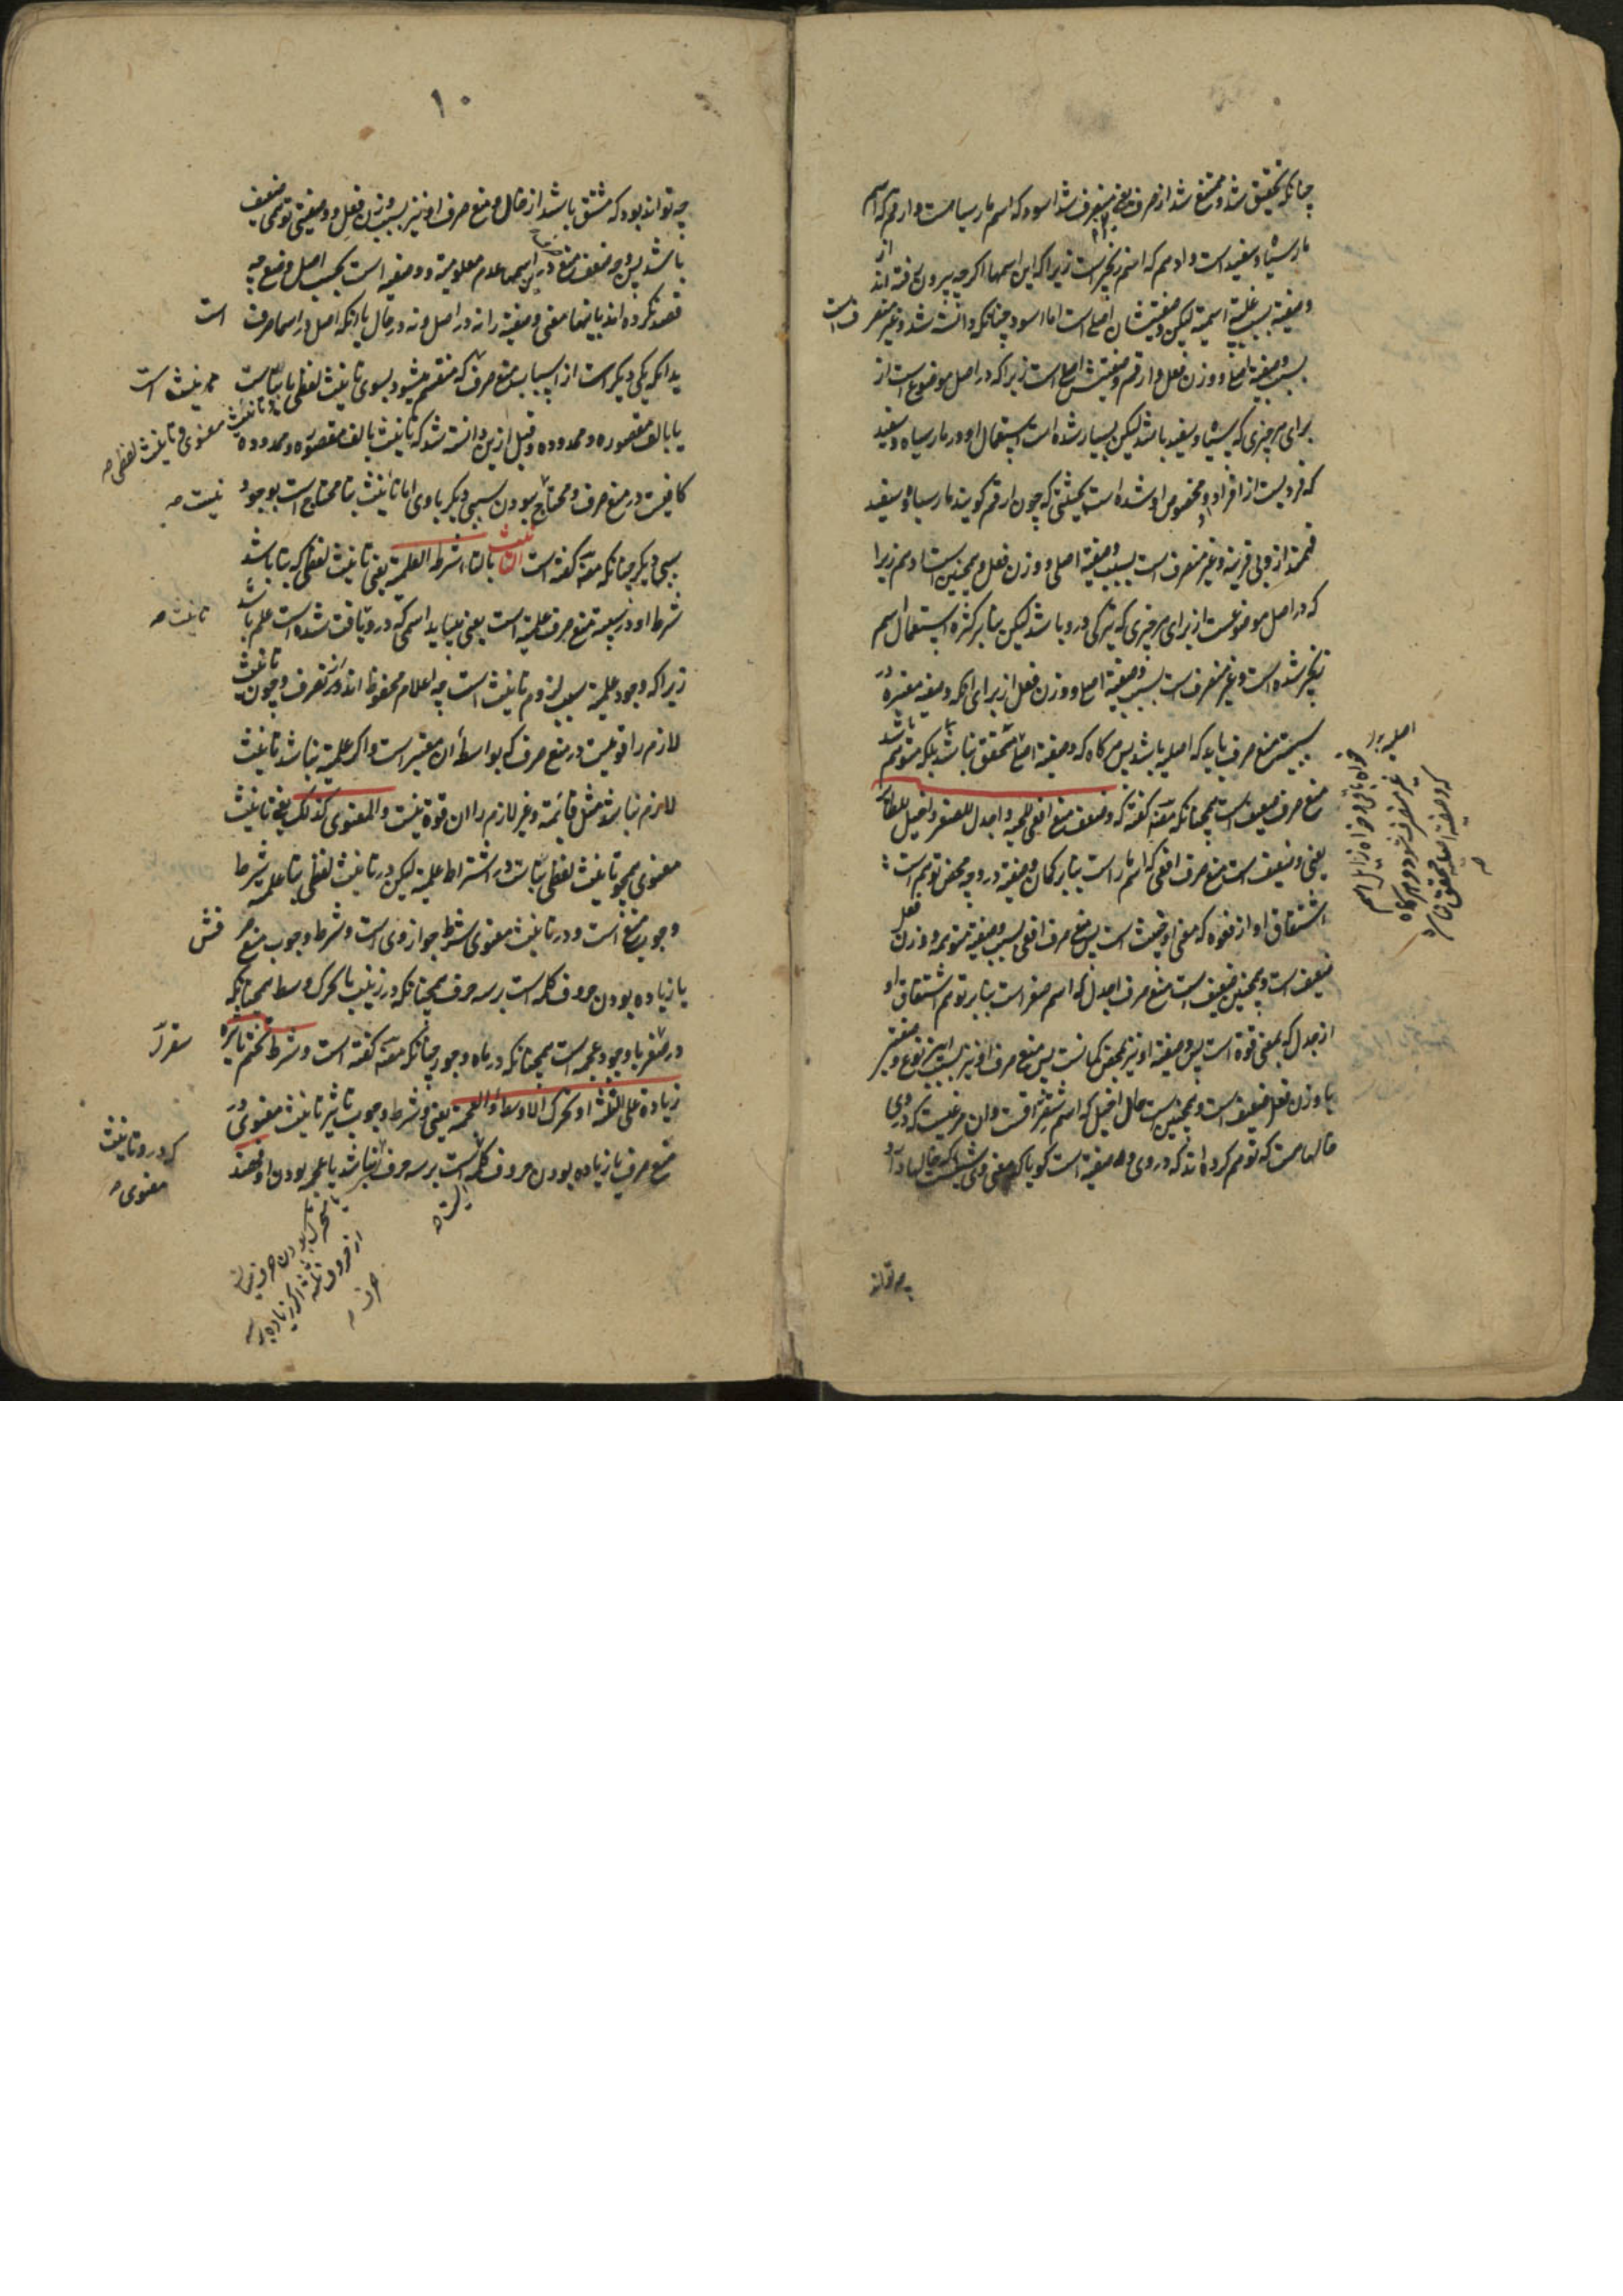 چنانکه تحقیق شد و ممتنع شد از صرف یعنی غیر منصرف شد اسود که اسم مار سیاهست و ارقم که اسم
مار سیاه و سفید است و ادهم که اسم زنجیر است زیرا که این اسمها اگرچه بیرون رفته اند از
وصفیة بسبب غلبة اسمیة لیکن وصفیتشان اصلی است اما اسود چنانکه دانسته شد و غیر منصرف است
بسبب وصفیة اصلی و وزن فعل و ارقم وصفیتش اصلی است زیرا که در اصل موضوع است از
برای هر چیزی که سیاه و سفید باشد لیکن بسیار شده است استعمال او در مار سیاه و سفید
که فردیست از افراد او و مخصوص او شده است بحیثیتی که چون ارقم گویند مار سیاه و سفید
فهمند از وی بی قرینه و غیر منصرف است بسبب وصفیة اصلی و وزن فعل و همچنین است ادهم زیرا
که در اصل موضوعست از برای هر چیزی که تیرگی درو باشد لیکن بنابر کثرة استعمال اسم
زنجیر شده است و غیر منصرف است بسبب وصفیة اصلی و وزن فعل از برای آنکه وصفیة معتبره در
سببیت منع صرف باید که اصلیه باشد پس هر گاه که وصفیة اصلی متحقق نباشد بلکه متوهم باشد
منع صرف ضعیف است همچنانکه مصنف گفته که وضعف منع افعی للحیة و اجدل للصقر و اخیل للطائر
یعنی وضعیف است منع صرف افعی که اسم مار است بنابر گمان وصفیة درو چه محض توهم است
اشتقاق او از فعوه که معنی او خبث است پس منع صرف افعی بسبب وصفیة متوهمه و وزن فعل
ضعیف است و همچنین ضعیف است منع صرف اجدل که اسم صقر است بنابر توهم اشتقاق او
از جدل که بمعنی قوة است پس وصفیة او نیز بمحض گمانست پس منع صرف او نیز بسبب این نوع وصفیة
با وزن فعل ضعیف است و همچنین است حال اخیل که اسم شقراقست و آن مرغیست که در وی
خالهاست که توهم کرده اند که در وی وصفیة است گویا که معنی وی شیئیست که خالها دارد
چه تواند
اصلیه بود
خواه باقی و خواه زایل اسم
غیر منصرف شود و هر گاه
که وصفیة اصلیه محقق نباشد
۱۰
چه تواند بود که مشتق باشد از خال و منع صرف او نیز بسبب وزن فعل و وصفیتی توهمی ضعیف
باشد پس وجه ضعف منع درین اسمها عدم معلومیة وصفیه است بحسب اصل وضع چه
قصد نکرده اند باینها معنی وصفیة را نه در اصل و نه در حال با آنکه اصل در اسما صرفت است
بدانکه یکی دیگر است از اسباب منع صرف که منقسم میشود بسوی تانیث لفظی با تاست
تانیث است
و تانیث معنوی و تانیث لفظی
یا بالف مقصوره و ممدوده و قبل ازین دانسته شد که تانیث بالف مقصوره و ممدوده
کافیست در منع صرف و محتاج بودن سببی دیگر با وی اما تانیث بتا محتاج است بوجود
نیست
سببی دیگر چنانکه مصنف گفته است التانیث بالتاء شرطه العلمیة یعنی تانیث لفظی که بتا باشد
شرط او در سببیة منع صرف علمیة است یعنی میباید اسمی که درو یافت شده است علم باشد
تانیث
زیرا که وجود علمیة سبب لزوم تانیث است چه اعلام محفوظ اند از تصرف و چون تانیث
لازم را قوتیست در منع صرف که بواسطه آن معتبر است و اگر علمیة نباشد تانیث
لازم نباشد مثل قائمة و غیر لازم را آن قوة نیست والمعنوی کذلک یعنی تانیث
معنوی همچو تانیث لفظی بتاست در اشتراط علمیة لیکن در تانیث لفظی بتا علمیه شرط
وجوب منع است و در تانیث معنوی شرط جواز وی است و شرط وجوب منع صرفش
یا زیاده بودن حروف کلمه است بر سه حرف همچنانکه در زینب یا تحرک وسط همچنانکه
در سقر یا وجود عجمه است همچنانکه در ماه و جور چنانکه مصنف گفته است و شرط تحتم تاثیره
سقر
زیادة علی الثلثة او تحرک الاوسط او العجمة یعنی و شرط وجوب تاثیر تانیث معنوی در
منع صرف یا زیاده بودن حروف کلمه ایست بر سه حرف اگر نباشد یا عجمه بودن او و هند
که درو تانیث
معنوی
یا متحرک بودن حرف میانه
از حروف ثلثه اگر زیاده بر سه
حرف